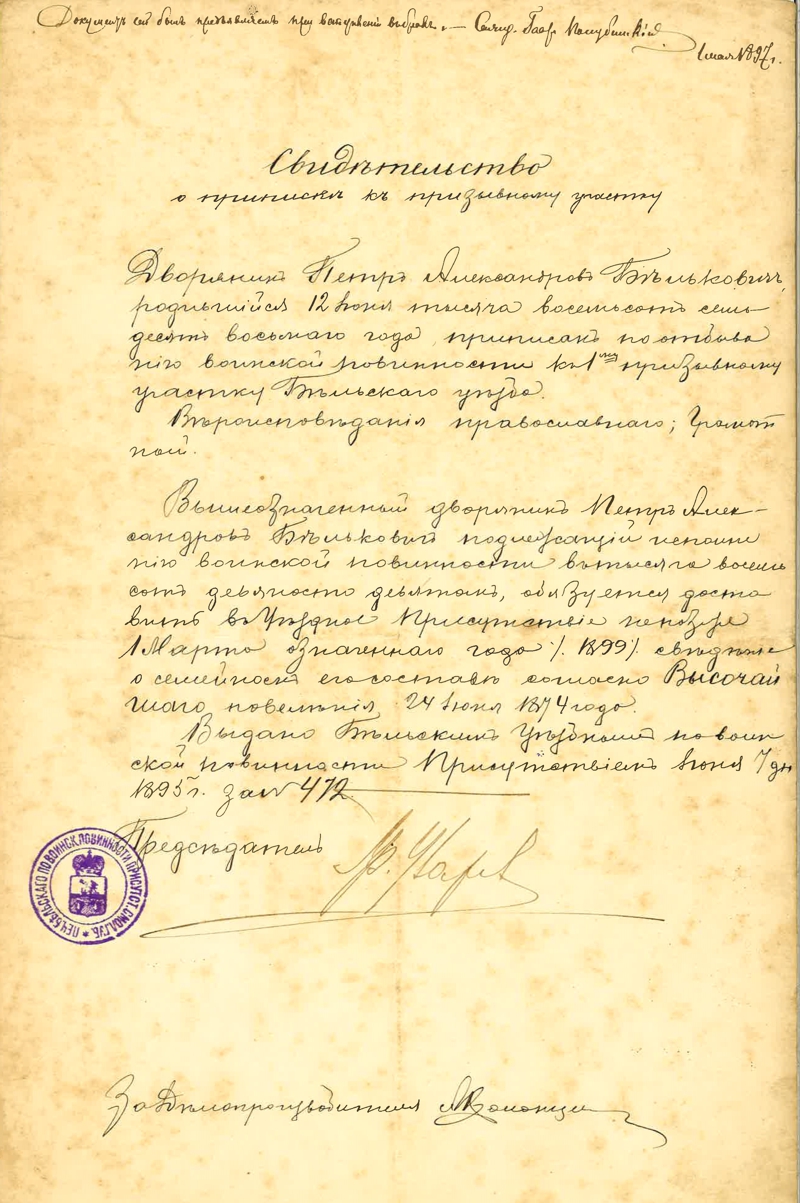 Документъ сей былъ предъявляемъ при вступленіи въ бракъ. — Свящ.
1 мая 1897 г.
Свидѣтельство
о припискѣ къ призывному участку
Дворянинъ Петръ Александровъ Бѣльковичъ,
родившійся 12 Іюня тысяча восемьсотъ семь-
десятъ восьмаго года, приписанъ по отбыва
нію воинской повинности къ 1му призывному
участку Бѣльскаго уѣзда.
Вѣроисповѣданія православнаго; Грамот
ной.
Вышеозначенный дворянинъ Петръ Алек-
сандровъ Бѣльковичъ подлежащій исполне
нію воинской повинности въ тысяча восемь
сотъ девяносто девятомъ, обязуется доста
вить въ Уѣздное Присутствіе не позже
1 Марта означеннаго года /. 1899 ./ свѣдѣніе
о семейномъ его составѣ согласно Высочай
шаго повелѣнія 24 Іюня 1874 года.
Выдано Бѣльскимъ Уѣзднымъ по воин
ской повинности Присутствіемъ Іюня 7 дн
1895 г. за № 472
Предсѣдатель
ПЕЧ. БѢЛЬСКАГО ПО ВОИНСК. ПОВИННОСТИ ПРИСУТСТ. СМОЛ. ГУБ. *
За Дѣлопроизводителя